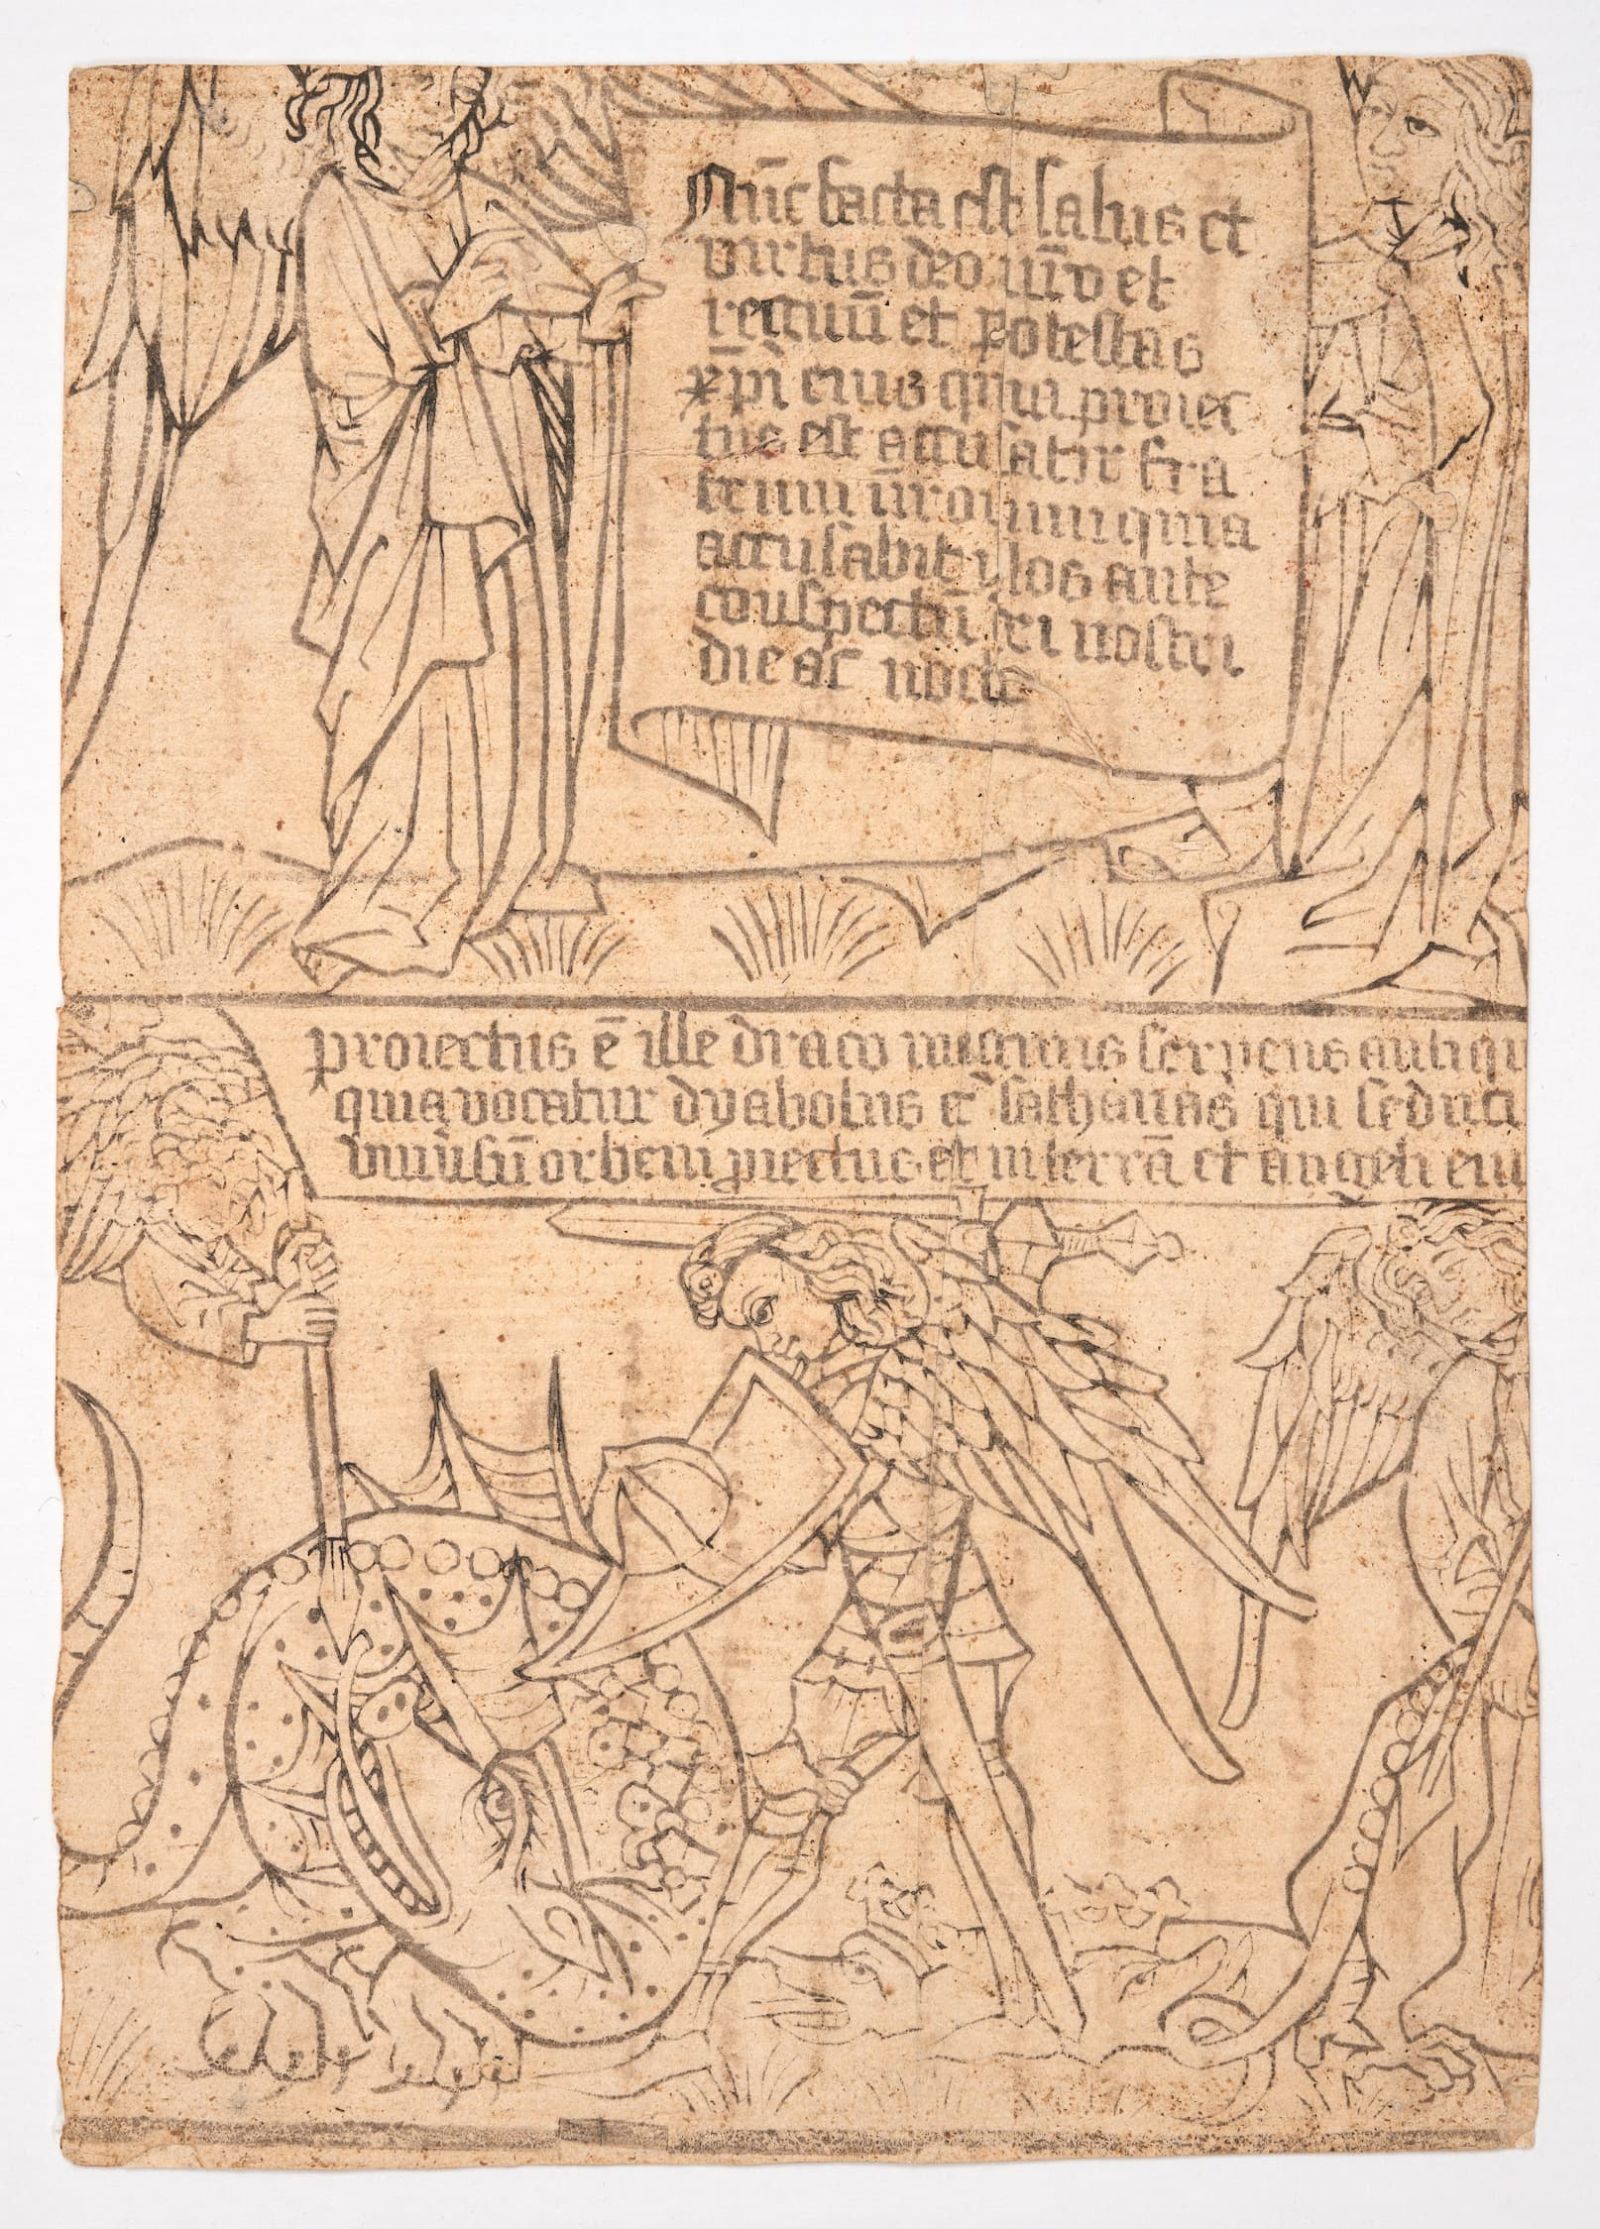 Nūc facta est salus et
virtus deo nr̄o et
regnuū et potestas
xp̄i eius quia proiec
tus est accusator fra
trum nr̄orum quia
accusabit illos ante
conspectū dei nostri
die ac nocte
proiectus ē ille draco magnus serpens antiqu
qui vocatur dyabolus et sathanas qui seduci
orbem piectus est in terrā et angeli eiu